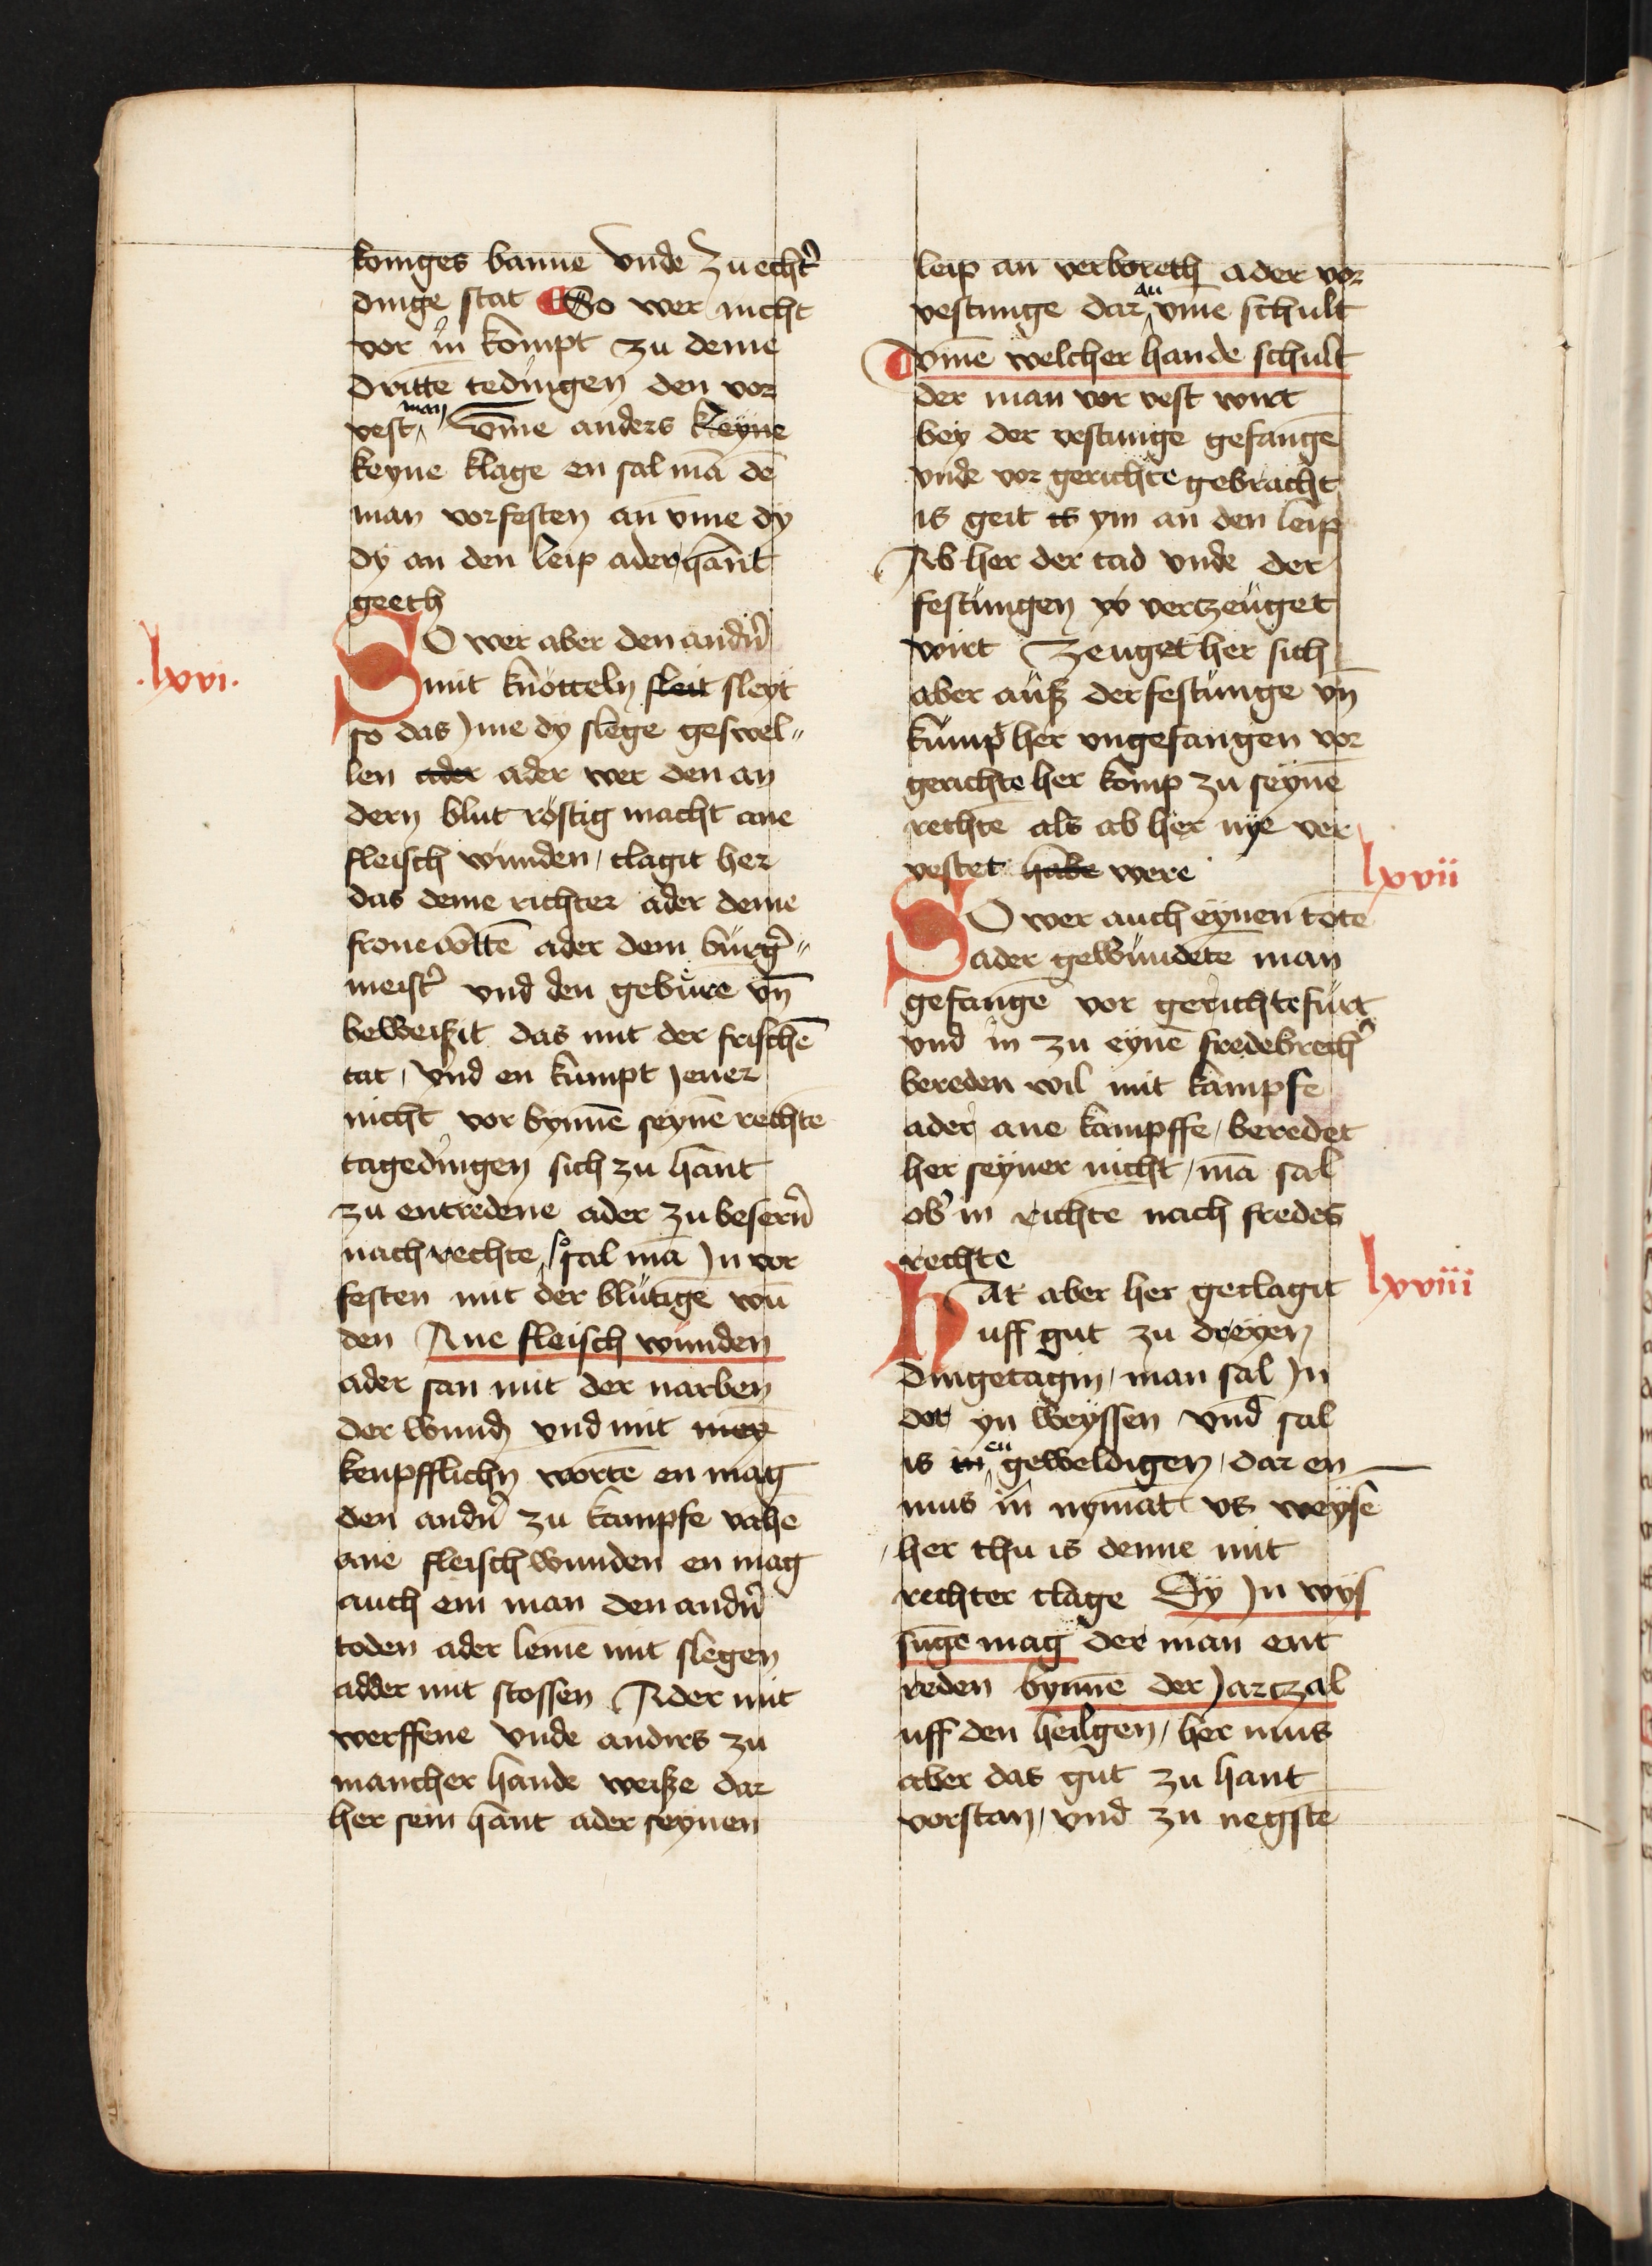 koniges banne vnde zu echtˀ
dinge stat So wer nicht
vor in kompt zu deme
dritte tedingen den vor
vest man vm̄e anders keyne
keyne klage en sal mā dē
man vorfesten an vm̄e dy
dy an den leip ader hant
geeth
.lxvi.
SO wer aber den andˀn
mit knötteln sleit sleyt
so das Jme dy slege geswel„
len ader ader wer den an
dern blut röstig macht ane
fleisch wunden / clagit her
das deme richter ader deme
fronebotte̅ ader dem burgˀ„
meistˀ vnd den gebure vn̄
beweiszit das mit der frischē
tat / vnd en kumpt Jener
nicht vor bynnē seynē rechte
tagedingen sich zu hant
zu entredene ader zu besernˀ
nach rechte / so sal mā Jn vor
festen mit der blutigē wū
den Ane fleisch wunden
ader san mit der narben
der wund vnd mit
kenpfflichn wortē en mag
den andˀn zu kampfe vahe
ane fleisch wunden en mag
auch ein man den andˀn
toden ader lemē mit slegen
adder mit stossen Ader mit
werffene vnde andirs zu
mancher hande weisze dar
her sein hant ader seynen
leip an verboreth ader vor
vestunge dar an vm̄e schult
vm̄e welcher hande schult
der man vor vest wirt
bey der vestunge gefangē
vnde vor gerichte gebracht
is geit is ym an den leip
Ab her der tad vnde der
festungen vertzeuget
wirt Zeuget her sich
aber ausz der festunge vn̄
kumpt her vngefangen vor
gerichte her komp zu seynē
rechte als ab her nye ver
vestet habe were
lxvii
SO wer auch eynen totē
ader gewundetē man
gefangē vor gerichte furt
vnd in zu eynē fredebrechˀ
bereden wil mit kampfe
ader ane kampffe / beredet
her seyner nicht / mā sal
obˀ in richte nach fredes
rechte
lxviii
HAt aber her geclagit
uff gut zu dreyen
dingetagin / man sal Jn
dor yn weyssen vnd sal
is in en geweldigen / dar en
mus in nymat vs weyse
her thu is denne mit
rechter clage Dy Jn wys
sungē mag der man ent
reden bynnē der Jartzal
uff den heilgen / her mus
aber das gut zu hant
vorstan / vnd zu negste